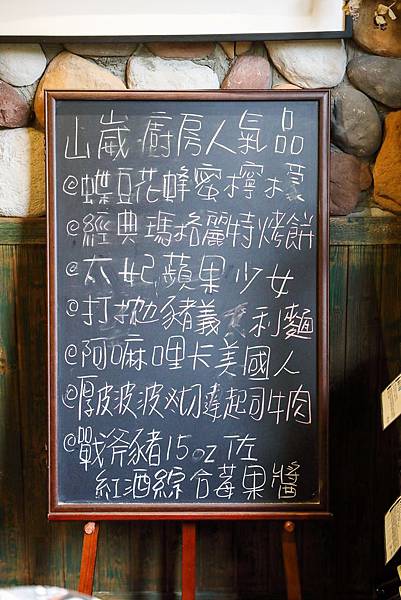 山崴廚房人氣品
@蝶豆花蜂蜜檸檬
@經典瑪格麗特烤餅
@太妃蘋果少女
@打拋豬義大利麵
@阿嘛哩卡美國人
@厚皮波波火切達起司牛肉
@戰斧豬15oz 佐
紅酒綜合莓果醬